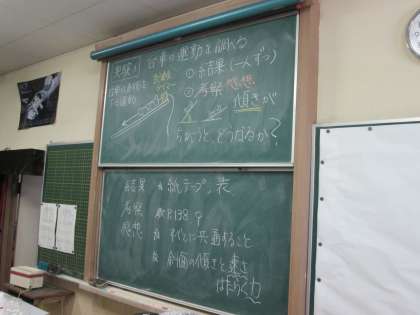 実験1 台車の運動を調べる
①結果(一人ずつ)
②考察 感想
傾きが
ちがうと、どうなるか?
結果 紙テープ、表
考察 P138
感想 すべてに共通すること
斜面の傾きと速さ
はたらく力